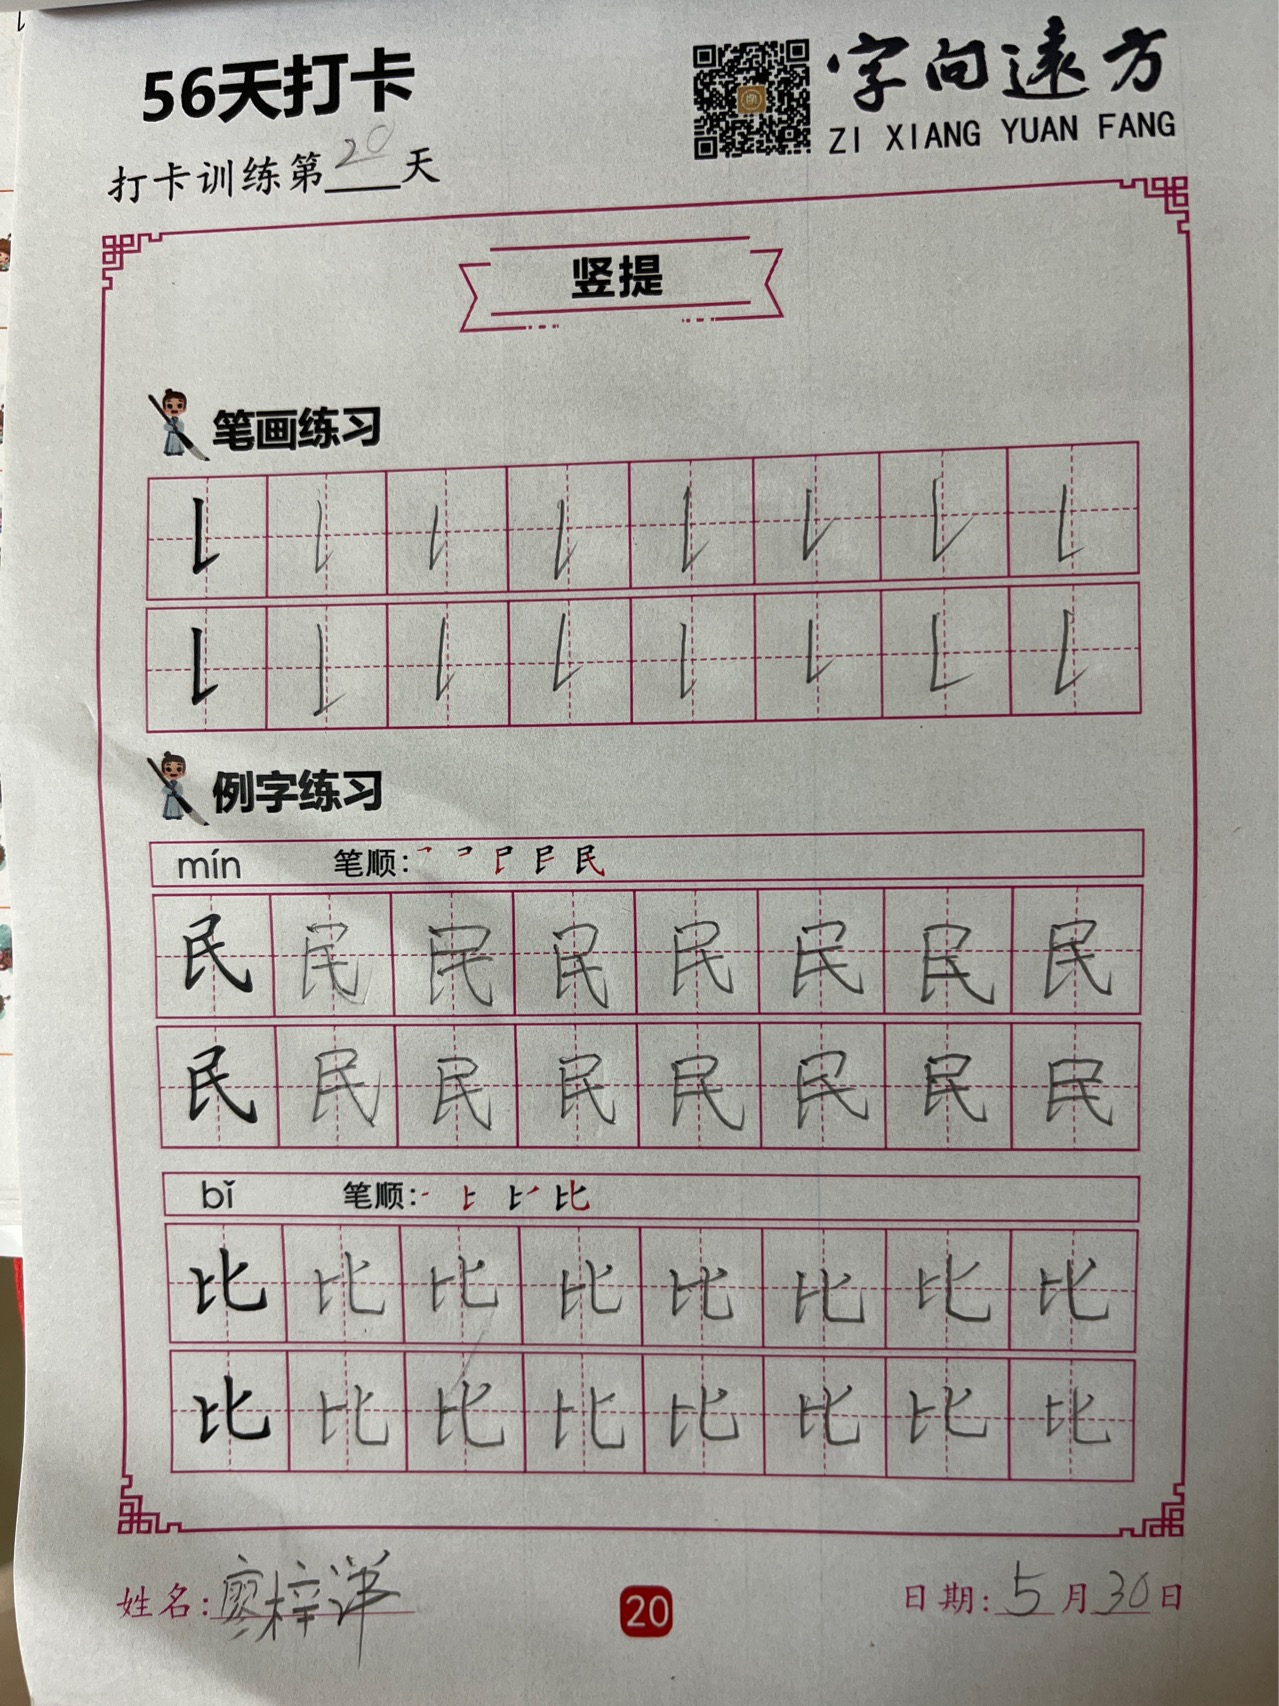 56天打卡
字向遠方
ZI XIANG YUAN FANG
打卡训练第20天
竖提
笔画练习
例字练习
mín 笔顺:
民 民 民 民 民 民 民 民
民 民 民 民 民 民 民 民
bǐ 笔顺:
比 比 比 比 比 比 比 比
比 比 比 比 比 比 比 比
姓名:廖梓洋
20
日期:5月30日